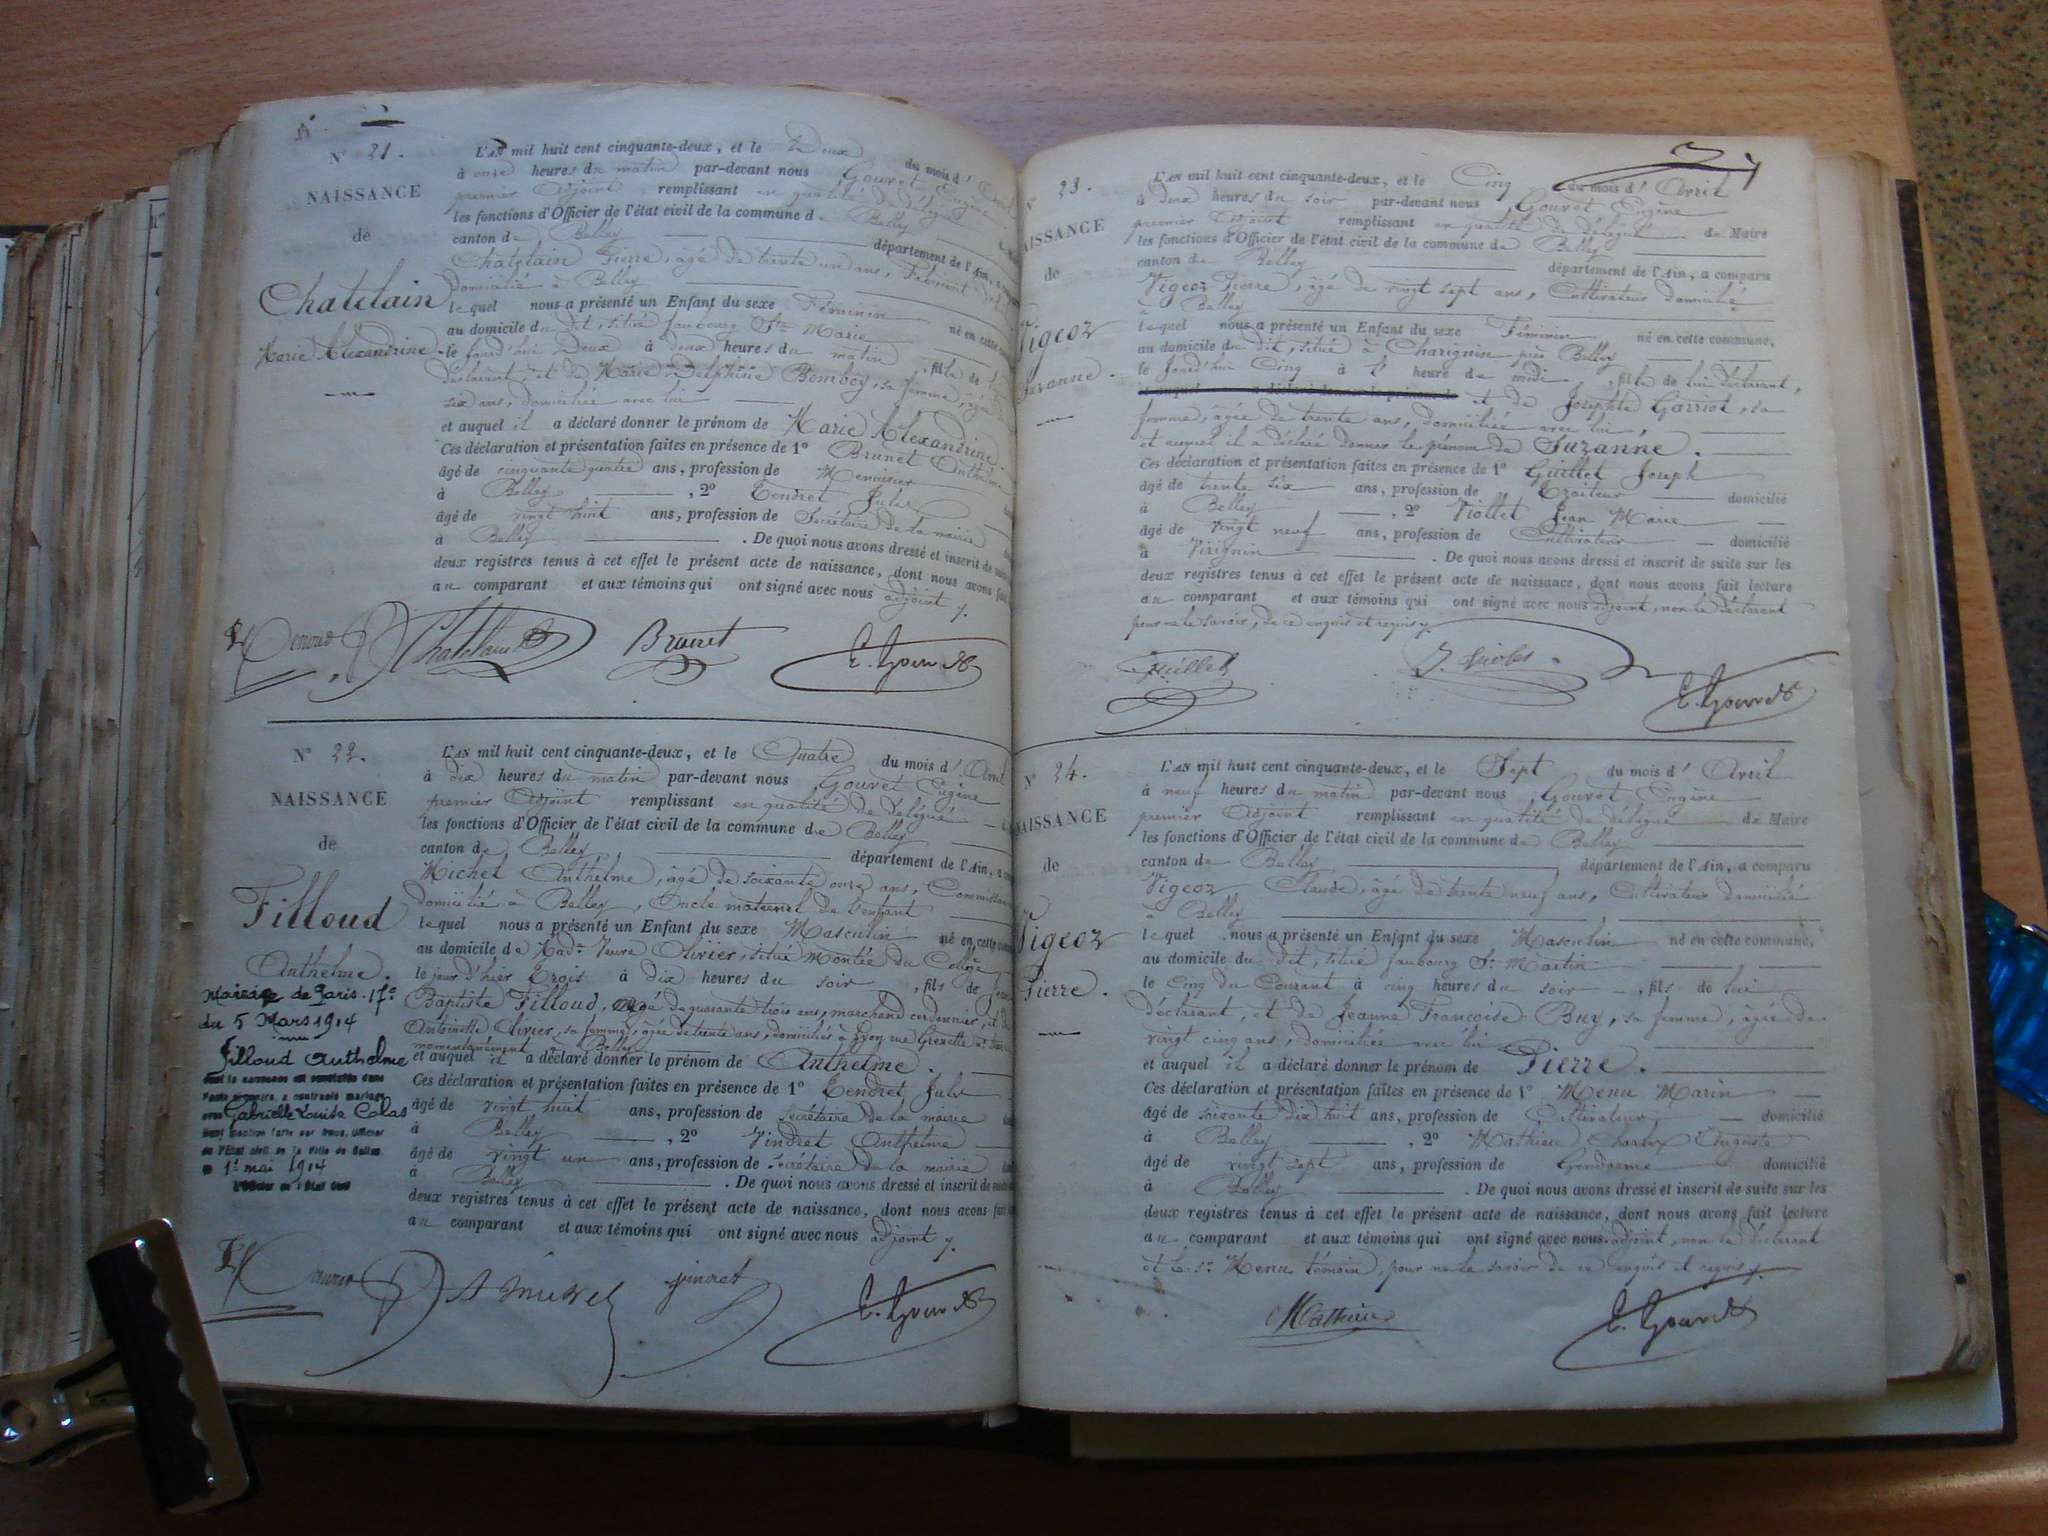 N° 21.
NAISSANCE
de
Chatelain
Marie Alexandrine
L'AN mil huit cent cinquante-deux, et le Deux du mois d'
à onze heures du matin par-devant nous Gouvet Eugène
premier Adjoint remplissant en qualité de délégué
les fonctions d'Officier de l'état civil de la commune de Belley
canton de Belley département de l'Ain,
Chatelain Pierre, agé de trente un ans, Fabricant
domicilié à Belley
lequel nous a présenté un Enfant du sexe Féminin né en cette
au domicile du dit, situé faubourg Ste Marie
le jourd'hui Deux à deux heures du matin, fille de
déclarant, et de Marie Delphine Bomboy, sa femme, âgée
six ans, domiciliée avec lui
et auquel il a déclaré donner le prénom de Marie Alexandrine.
Ces déclaration et présentation faites en présence de 1° Brunet Anthelme
âgé de cinquante quatre ans, profession de Menuisier
à Belley, 2° Tendret Jules
âgé de vingt huit ans, profession de Secrétaire de la mairie
à Belley. De quoi nous avons dressé et inscrit de suite
deux registres tenus à cet effet le présent acte de naissance, dont nous avons fait
au comparant et aux témoins qui ont signé avec nous adjoint
Chatelain Brunet E. Gouvet
N° 22.
NAISSANCE
de
Filloud
Anthelme.
Mairie de Paris. 17e
du 5 Mars 1914
Filloud Anthelme
dont la naissance est constatée dans
l'acte ci-contre, a contracté mariage
avec Gabrielle Louise Calas
dont mention faite par nous, Officier
de l'Etat civil de la Ville de Belley
le 1er mai 1914
L'Officier de l'Etat civil
L'AN mil huit cent cinquante-deux, et le Quatre du mois d'Avril
à dix heures du matin par-devant nous Gouvet Eugène
premier Adjoint remplissant en qualité de délégué
les fonctions d'Officier de l'état civil de la commune de Belley
canton de Belley département de l'Ain, a
Michel Anthelme, âgé de soixante onze ans,
domicilié à Belley, Oncle maternel de l'enfant
lequel nous a présenté un Enfant du sexe Masculin né en cette
au domicile de Made Veuve Olivier, situé montée du Collège
le jour d'hier Trois à dix heures du soir, fils de Jean
Baptiste Filloud, agé de quarante trois ans, marchand cordonnier, et de
Antoinette Olivier, sa femme, âgée de trente ans, domiciliés à Lyon, rue Grenette
momentanément à Belley
et auquel il a déclaré donner le prénom de Anthelme.
Ces déclaration et présentation faites en présence de 1° Tendret Jules
âgé de vingt huit ans, profession de secrétaire de la mairie
à Belley, 2° Vindret Anthelme
âgé de vingt un ans, profession de secrétaire de la mairie
à Belley. De quoi nous avons dressé et inscrit de suite
deux registres tenus à cet effet le présent acte de naissance, dont nous avons fait
au comparant et aux témoins qui ont signé avec nous adjoint
E. Gouvet
N° 23.
NAISSANCE
de
Vigeoz
Suzanne.
L'AN mil huit cent cinquante-deux, et le Cinq du mois d'Avril
à deux heures du soir par-devant nous Gouvet Eugène
premier Adjoint remplissant en qualité de délégué de Maire
les fonctions d'Officier de l'état civil de la commune de Belley
canton de Belley département de l'Ain, a comparu
Vigeoz Pierre, âgé de vingt sept ans, Cultivateur domicilié
à Belley
lequel nous a présenté un Enfant du sexe Féminin né en cette commune,
au domicile du dit, situé à Charignin près Belley
le Jourd'hui Cinq à 1 heure de midi, fille de lui déclarant,
et de Josephte Garriot, sa
femme, âgée de trente ans, domiciliée avec lui
et auquel il a déclaré donner le prénom de Suzanne.
Ces déclaration et présentation faites en présence de 1° Guillet Joseph
âgé de trente six ans, profession de Traiteur domicilié
à Belley, 2° Viollet Jean Marie
âgé de vingt neuf ans, profession de Cultivateur domicilié
à Virignin. De quoi nous avons dressé et inscrit de suite sur les
deux registres tenus à cet effet le présent acte de naissance, dont nous avons fait lecture
au comparant et aux témoins qui ont signé avec nous adjoint, non le déclarant
pour ne le savoir, de ce enquis et requis
Guillet E. Gouvet
N° 24.
NAISSANCE
de
Vigeoz
Pierre.
L'AN mil huit cent cinquante-deux, et le Sept du mois d'Avril
à neuf heures du matin par-devant nous Gouvet Eugène
premier Adjoint remplissant en qualité de délégué de Maire
les fonctions d'Officier de l'état civil de la commune de Belley
canton de Belley département de l'Ain, a comparu
Vigeoz Claude, âgé de trente neuf ans, Cultivateur domicilié
à Belley
lequel nous a présenté un Enfant du sexe Masculin né en cette commune,
au domicile du dit, situé faubourg St Martin
le Cinq du Courant à cinq heures du soir, fils de lui
déclarant, et de Jeanne Françoise Buy, sa femme, âgée de
vingt cinq ans, domiciliée avec lui
et auquel il a déclaré donner le prénom de Pierre.
Ces déclaration et présentation faites en présence de 1° Menu Marin
âgé de soixante dix huit ans, profession de Cultivateur domicilié
à Belley, 2° Mathieu Charles Auguste
âgé de vingt sept ans, profession de Gendarme domicilié
à Belley. De quoi nous avons dressé et inscrit de suite sur les
deux registres tenus à cet effet le présent acte de naissance, dont nous avons fait lecture
au comparant et aux témoins qui ont signé avec nous adjoint, non le déclarant
et le sr Menu témoin, pour ne le savoir de ce enquis et requis
Mathieu E. Gouvet